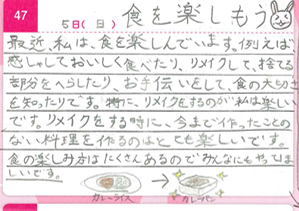 47
5日(日) 食を楽しもう
最近、私は、食を楽しんでいます。例えば
感しゃしておいしく食べたり、リメイクして、捨てる
部分をへらしたり、お手伝いをして、食の大切さ
を知ったりです。特に、リメイクをするのが私は楽しい
です。リメイクをする時に、今まで作ったことの
ない料理を作るのはとても楽しいです。
食の楽しみ方はたくさんあるのでみんなにもやってほ
しいです。
カレーライス カレーパン